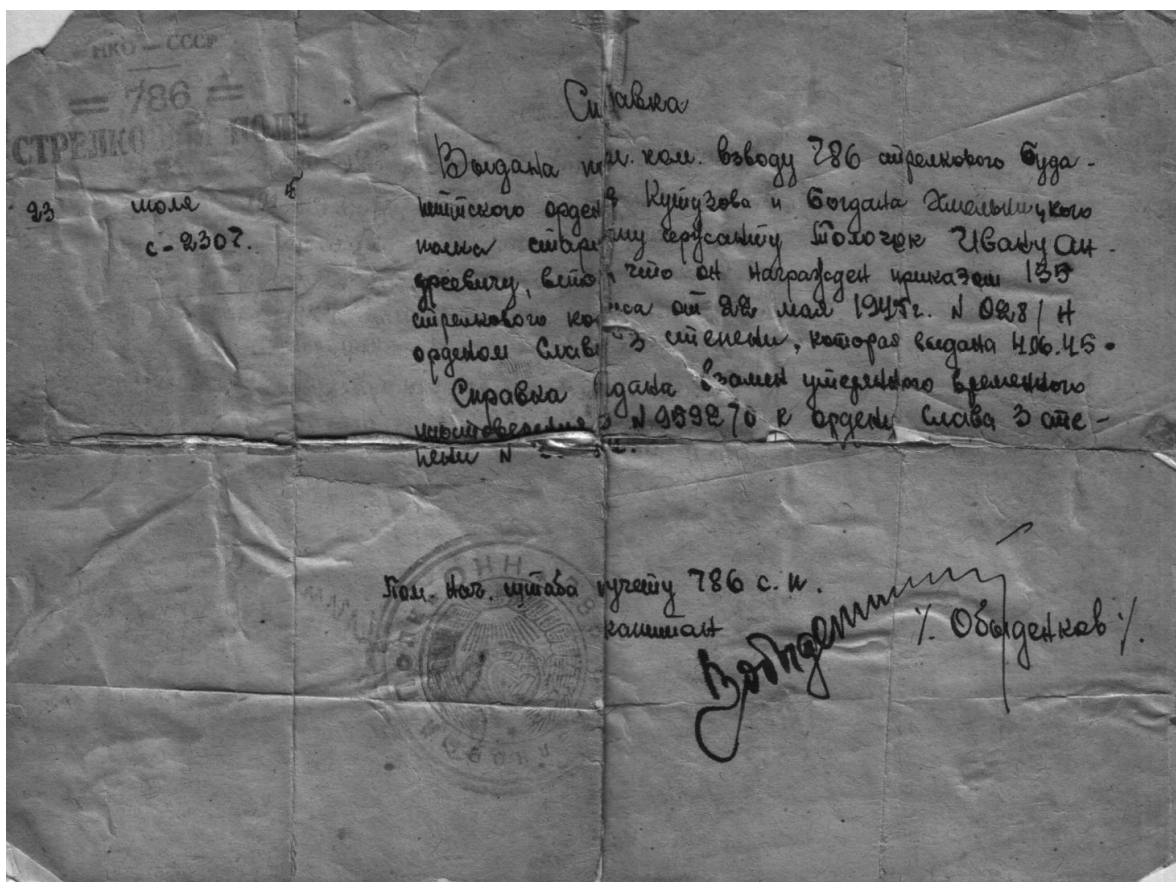 НКО — СССР
= 786 =
СТРЕЛКОВЫЙ ПОЛК
23 июля
с-2307.
Справка
Выдана ком. взводу 786 стрелкового Буда-
пештского ордена Кутузова и Богдана Хмельницкого
полка старшему сержанту Толочек Ивану Ан-
дреевичу, в том что он награжден приказом 135
стрелкового корпуса от 22 мая 1945г. N 028/Н
орденом Слава 3 степени, которая выдана 4.06.45.
Справка выдана взамен утерянного временного
удостоверения N 959270 к ордену Слава 3 сте-
пени N
Пом. Нач. штаба по учету 786 с. п.
капитан
/. Обыденков /.